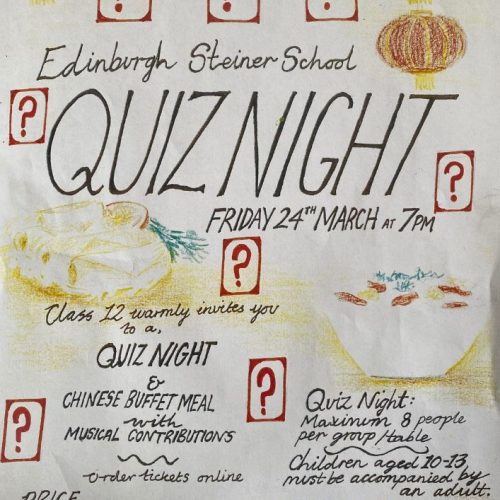 Edinburgh Steiner School
QUIZ NIGHT
FRIDAY 24TH MARCH AT 7PM
Class 12 warmly invites you
to a,
QUIZ NIGHT
&
CHINESE BUFFET MEAL
with
MUSICAL CONTRIBUTIONS
order tickets online
Quiz Night:
Maximum 8 people
per group/table
Children aged 10-13
must be accompanied by
an adult.
PRICE